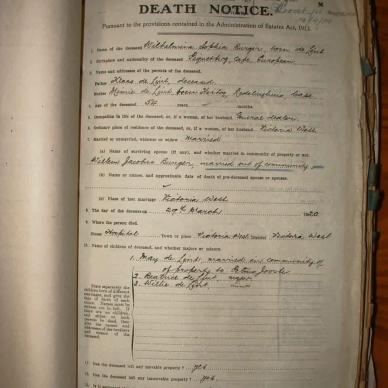 DEATH NOTICE.
Pursuant to the provisions contained in the Administration of Estates Act, 1913.
1. Name of the deceased Wilhelmina Sophia Burger, born de Lint
2. Birthplace and nationality of the deceased Cape European
3. Names and addresses of the parents of the deceased.
Father Klaas de Lint, deceased
Mother Minnie de Lint born Hertog Cape
4. Age of the deceased 54 years months
5. Occupation in life of the deceased, or, if a woman, of her husband General dealer
6. Ordinary place of residence of the deceased, or, if a woman, of her husband Victoria West
7. Married or unmarried, widower or widow Married
(a) Name of surviving spouse (if any), and whether married in community of property or not
Willem Jacobus Burger, married out of community
(b) Name or names, and approximate date of death of pre-deceased spouse or spouses
(c) Place of last marriage Victoria West
8. The day of the decease 29th March 1920
9. Where the person died
House Hospital Town or place Victoria West District Victoria West
10. Names of children of deceased, and whether majors or minors.
1. May de Lint, married in community of
of property to Petrus
2. Beatrice de Lint, major
3. Willie de Lint,
State separately the children born of different marriages, and give the date of birth of each minor.
11. Has the deceased left any movable property? yes
12. Has the deceased left any immovable property? yes